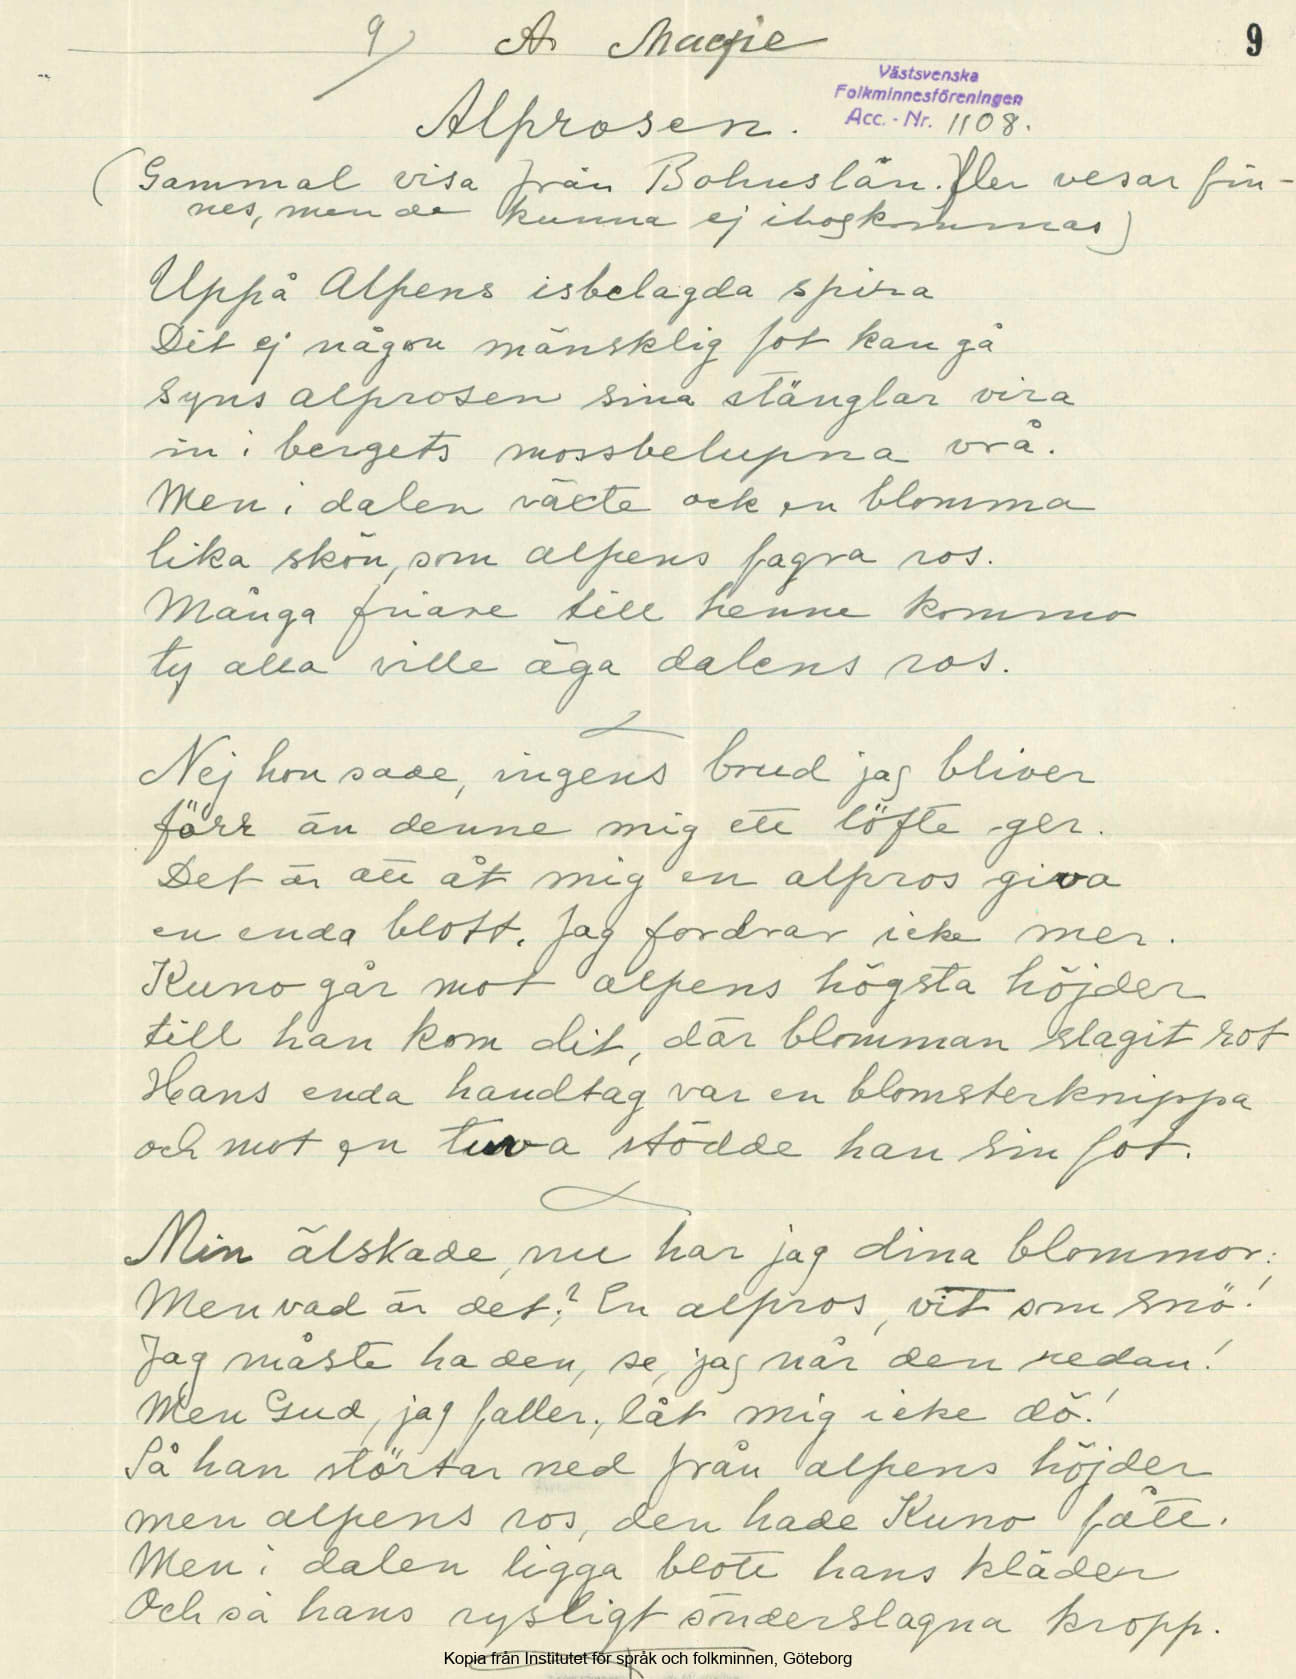 9/ A. Magie 9
Västsvenska
Folkminnesföreningen
Acc. - Nr. 1108.
Alprosen.
(Gammal visa från Bohuslän. (Fler vesar fin-
nes, men de kunna ej ihogkommas)
Uppå Alpens isbelagda spira
Dit ej någon mänsklig fot kan gå
syns alprosen sina stänglar vira
in i bergets mossbelupna vrå.
Men i dalen växte ock en blomma
lika skön, som alpens fagra ros.
Många friare till henne kommo
ty alla ville äga dalens ros.
Nej hon sade, ingens brud jag bliver
förr än denne mig ett löfte ger.
Det är att åt mig en alpros giva
en enda blott. Jag fordrar icke mer.
Kuno går mot alpens högsta höjder
till han kom dit, där blomman slagit rot
Hans enda handtag var en blomsterknippa
och mot en tuva stödde han sin fot.
Min älskade, nu har jag dina blommor:
Men vad är det? En alpros, vit som snö!
Jag måste ha den, se, jag når den redan!
Men Gud, jag faller, låt mig icke dö!
Så han störtar ned från alpens höjder
men alpens ros, den hade Kuno fått.
Men i dalen ligga blott hans kläder
Och så hans rysligt sönderslagna kropp.
Kopia från Institutet för språk och folkminnen, Göteborg